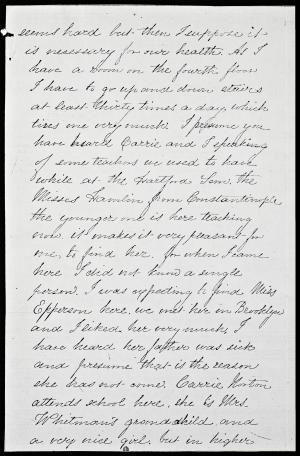 seems hard but then I suppose it
is necessary for our health. As I
have a room on the fourth floor
I have to go up and down stairs
at least thirty times a day, which
tires me very much. I presume you
have heard Carrie and I speaking
of some teachers we used to have
while at the Hartford Sem. the
Misses Hamlin from Constantinople
the younger one is here teaching
now. it makes it very pleasant for
me, to find her, for when I came
here I did not know a single
person. I was expecting to find Miss
Epperson here, we met her in Brooklyn
and I liked her very much, I
have heard her father was sick
and presume that is the reason
she has not come. Carrie Horton
attends school here, she is Mrs.
Whitman's grandchild and
a very nice girl, but in higher